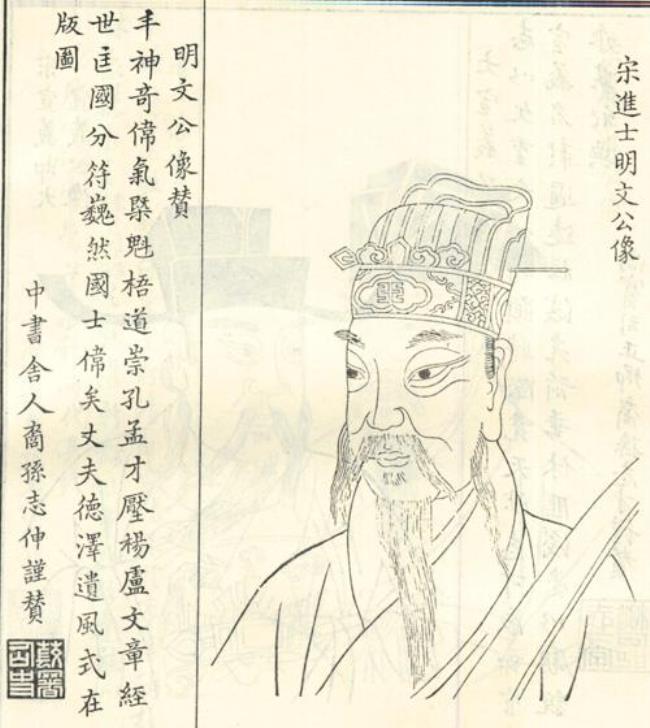 宋進士明文公像
明文公像賛
丰神奇偉氣槩魁梧道崇孔孟才壓楊盧文章經
世匡國分符巍然國士偉矣丈夫德澤遺風式在
版圖
中書舍人裔孫志伸謹賛